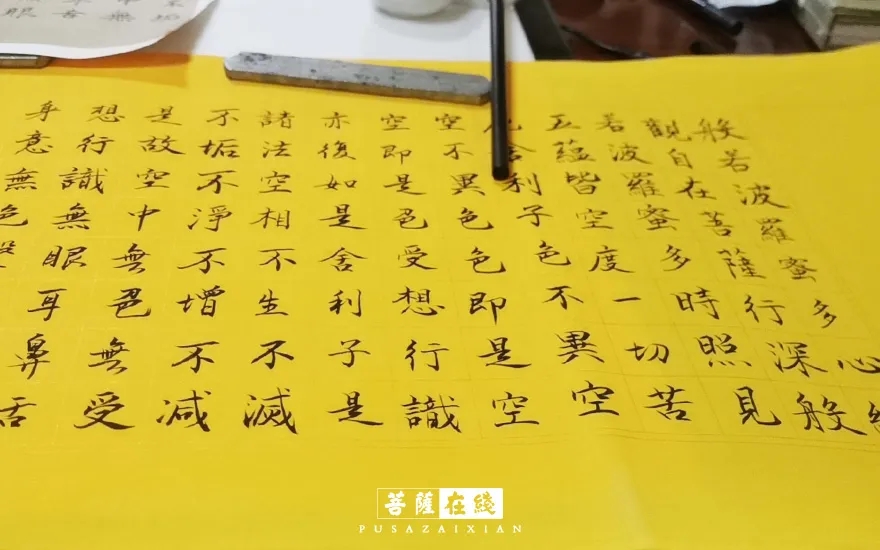 般若波羅蜜多心經
觀自在菩薩行深般
若波羅蜜多時照見
五蘊皆空度一切苦
舍利子色不異空
空不異色色即是空
空即是色受想行識
亦復如是舍利子是
諸法空相不生不滅
不垢不淨不增不减
是故空中無色無受
想行識無眼耳鼻舌
身意無色
菩薩在綫
PUSAZAIXIAN